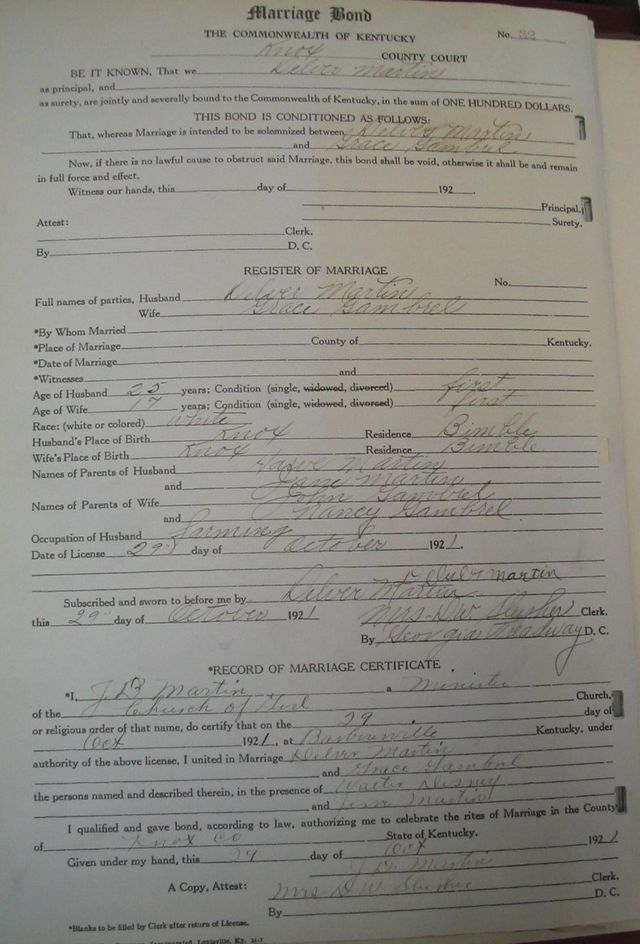 Marriage Bond
THE COMMONWEALTH OF KENTUCKY No. 32
Knox COUNTY COURT
BE IT KNOWN, That we Delver Martin
as principal, and
as surety, are jointly and severally bound to the Commonwealth of Kentucky, in the sum of ONE HUNDRED DOLLARS.
THIS BOND IS CONDITIONED AS FOLLOWS:
That, whereas Marriage is intended to be solemnized between Delver Martin
and Grace Gambrel
Now, if there is no lawful cause to obstruct said Marriage, this bond shall be void, otherwise it shall be and remain
in full force and effect.
Witness our hands, this day of 192 .
Principal.
Surety.
Attest:
Clerk.
By D. C.
REGISTER OF MARRIAGE
No.
Full names of parties, Husband Delver Martin
Wife Grace Gambrel
*By Whom Married
*Place of Marriage County of Kentucky.
*Date of Marriage
*Witnesses and
Age of Husband 25 years; Condition (single, widowed, divorced) first
Age of Wife 17 years; Condition (single, widowed, divorced) first
Race: (white or colored) White
Husband's Place of Birth Knox Residence Bimble
Wife's Place of Birth Knox Residence Bimble
Names of Parents of Husband Martin
and Jane Martin
Names of Parents of Wife John Gambrel
and Nancy Gambrel
Occupation of Husband Farming
Date of License 29 day of October 1921.
Martin
Subscribed and sworn to before me by Delver Martin
this 29 day of October 1921 Mrs. D W Slusher Clerk.
By Georgia Treadway D. C.
*RECORD OF MARRIAGE CERTIFICATE.
*I, J B Martin a Minister
of the Church of God Church,
or religious order of that name, do certify that on the 29 day of
Oct 1921, at Barbourville Kentucky, under
authority of the above license, I united in Marriage Delver Martin
and Grace Gambrel
the persons named and described therein, in the presence of Walter Disney
and Martin
I qualified and gave bond, according to law, authorizing me to celebrate the rites of Marriage in the County
of Knox Co State of Kentucky.
Given under my hand, this 29 day of Oct 1921
J B Martin
A Copy, Attest: Mrs D W Slusher Clerk.
By D. C.
*Blanks to be filled by Clerk after return of License.
Incorporated, Louisville, Ky.